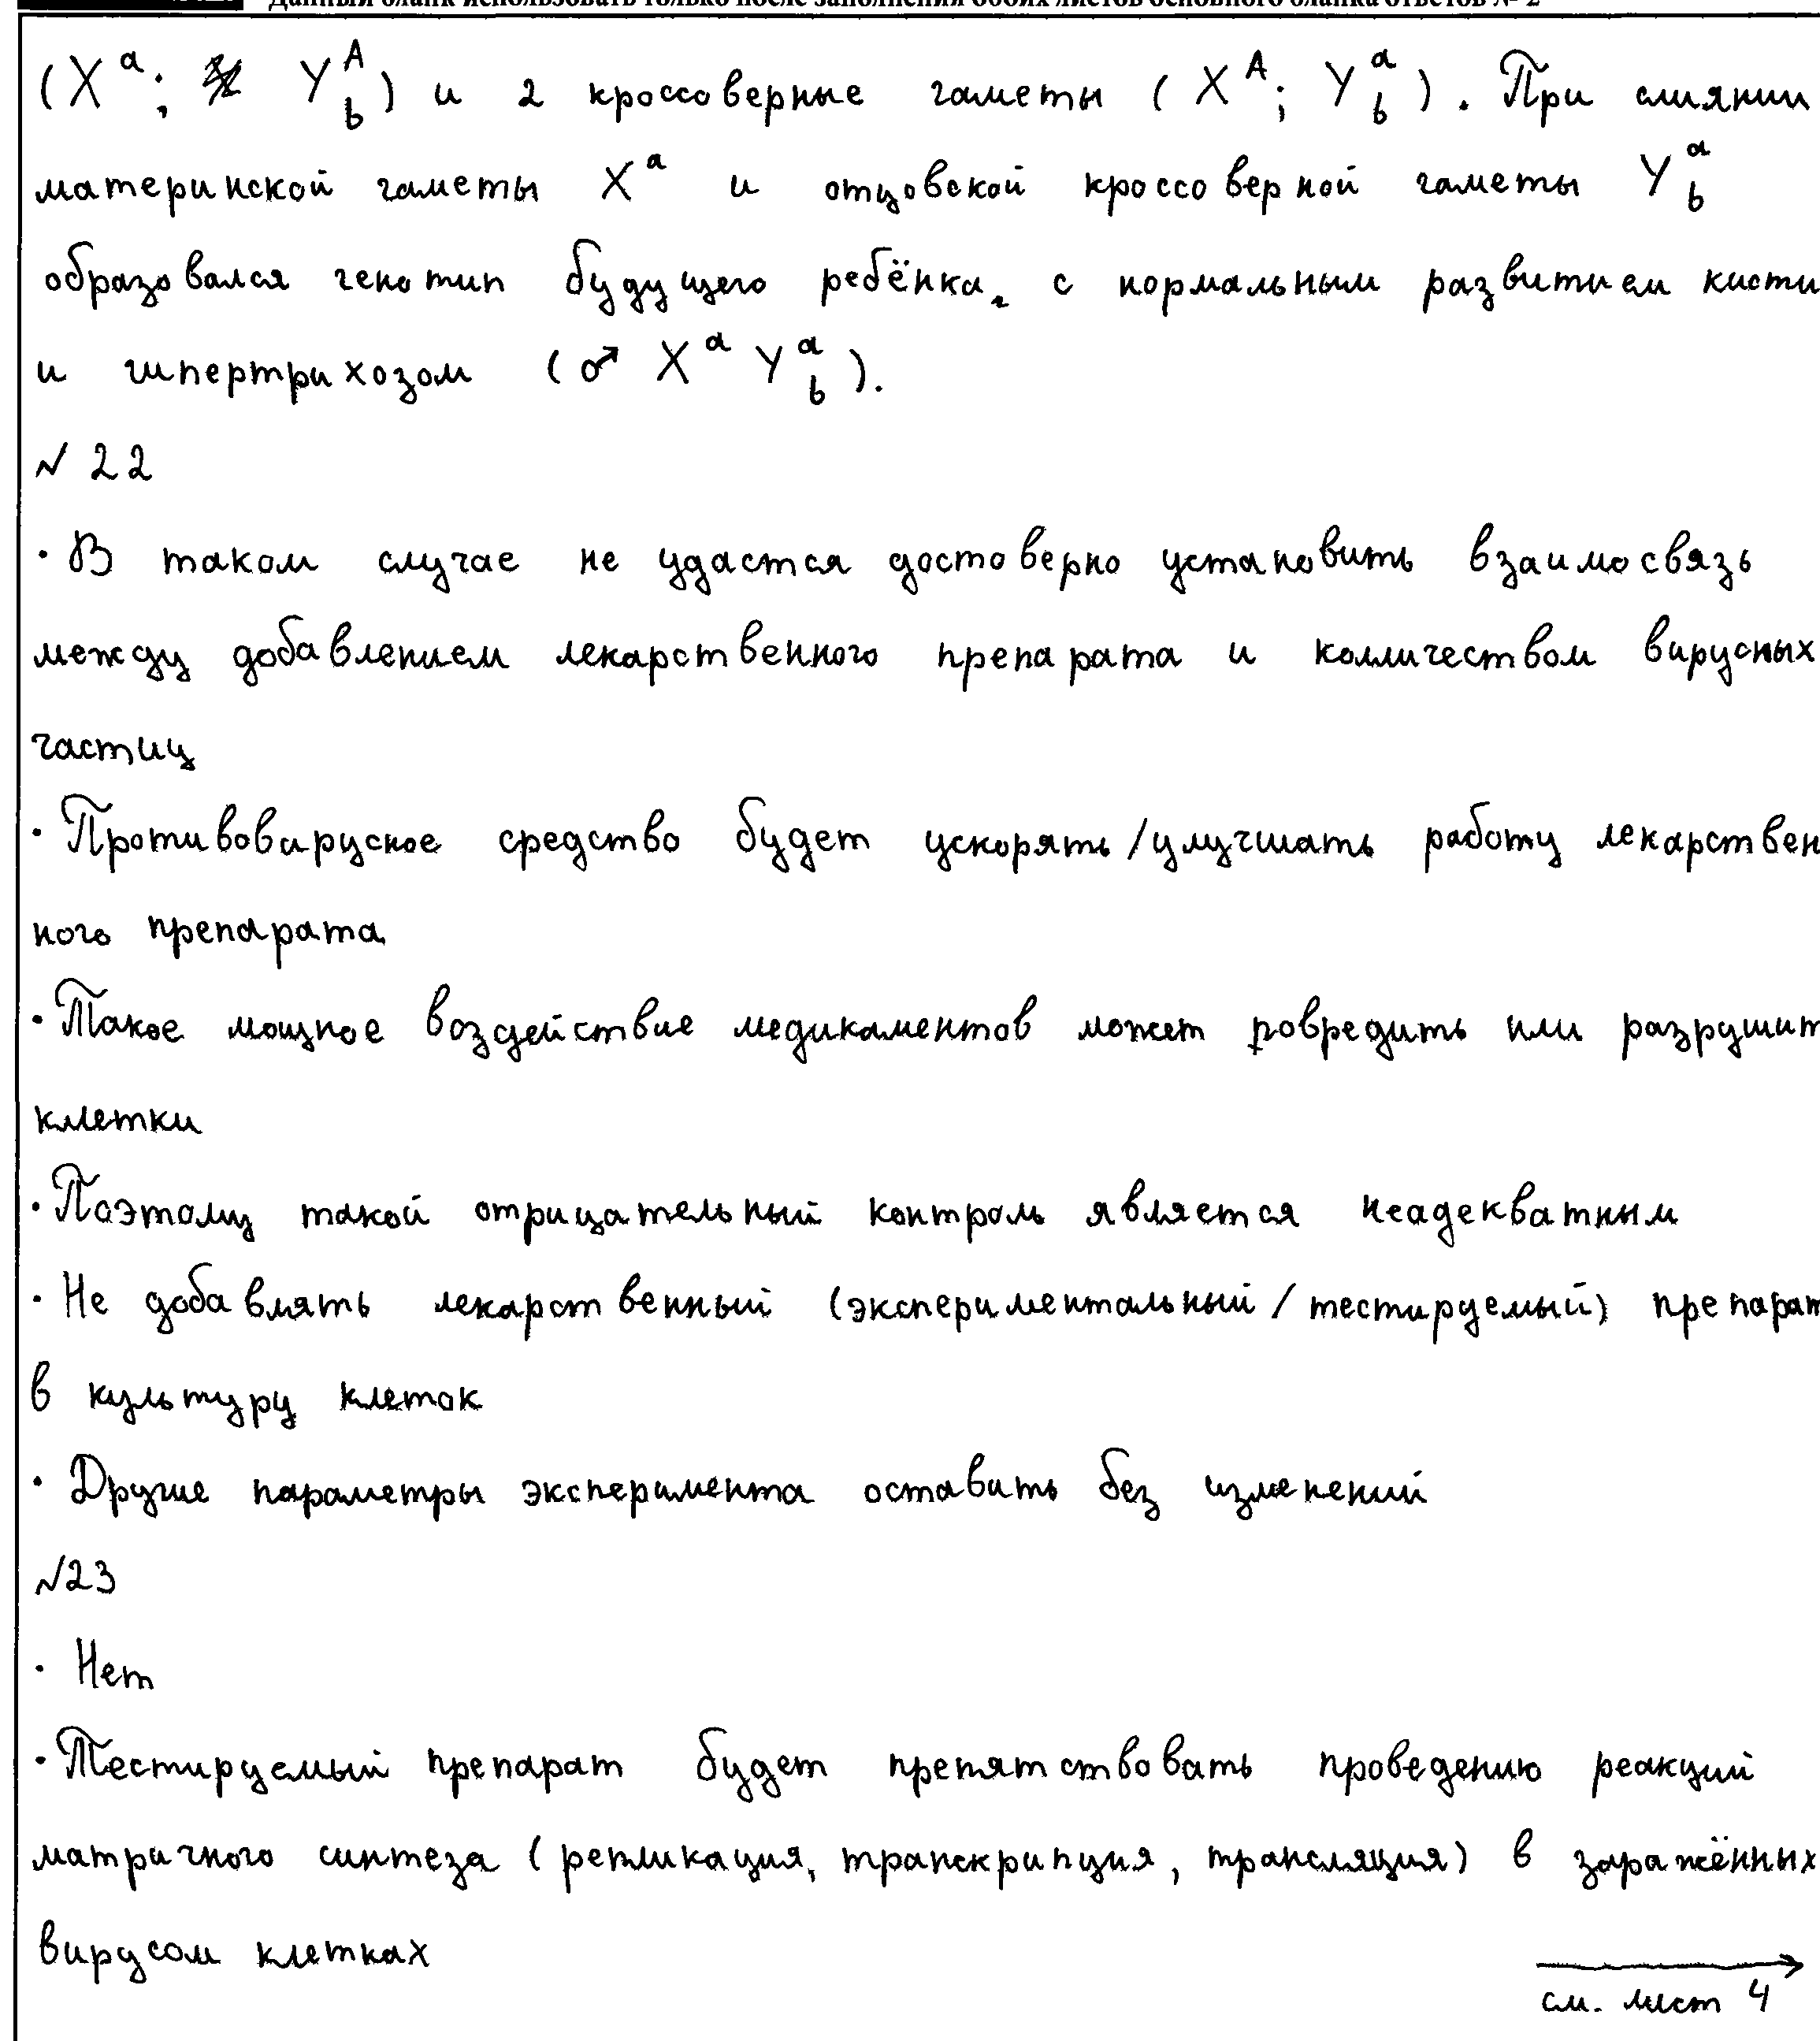 Данный бланк использовать только после заполнения обоих листов основного бланка ответов № 2
(Xᵃ; Yᴬb) и 2 кроссоверные гаметы (Xᴬ; Yᵃb). При слиянии
материнской гаметы Xᵃ и отцовской кроссоверной гаметы Yᵃb
образовался генотип будущего ребёнка, с нормальным развитием кисти
и гипертрихозом (♂ Xᵃ Yᵃb).
№ 22
· В таком случае не удастся достоверно установить взаимосвязь
между добавлением лекарственного препарата и колличеством вирусных
частиц
· Противовирусное средство будет ускорять/улучшать работу лекарствен
ного препарата
· Такое мощное воздействие медикаментов может повредить или разрушит
клетки
· Поэтому такой отрицательный контроль является неадекватным
· Не добавлять лекарственный (экспериментальный / тестируемый) препарат
в культуру клеток
· Другие параметры эксперимента оставить без изменений
№23
· Нет
· Тестируемый препарат будет препятствовать проведению реакций
матричного синтеза (репликация, транскрипция, трансляция) в заражённых
вирусом клетках
см. лист 4